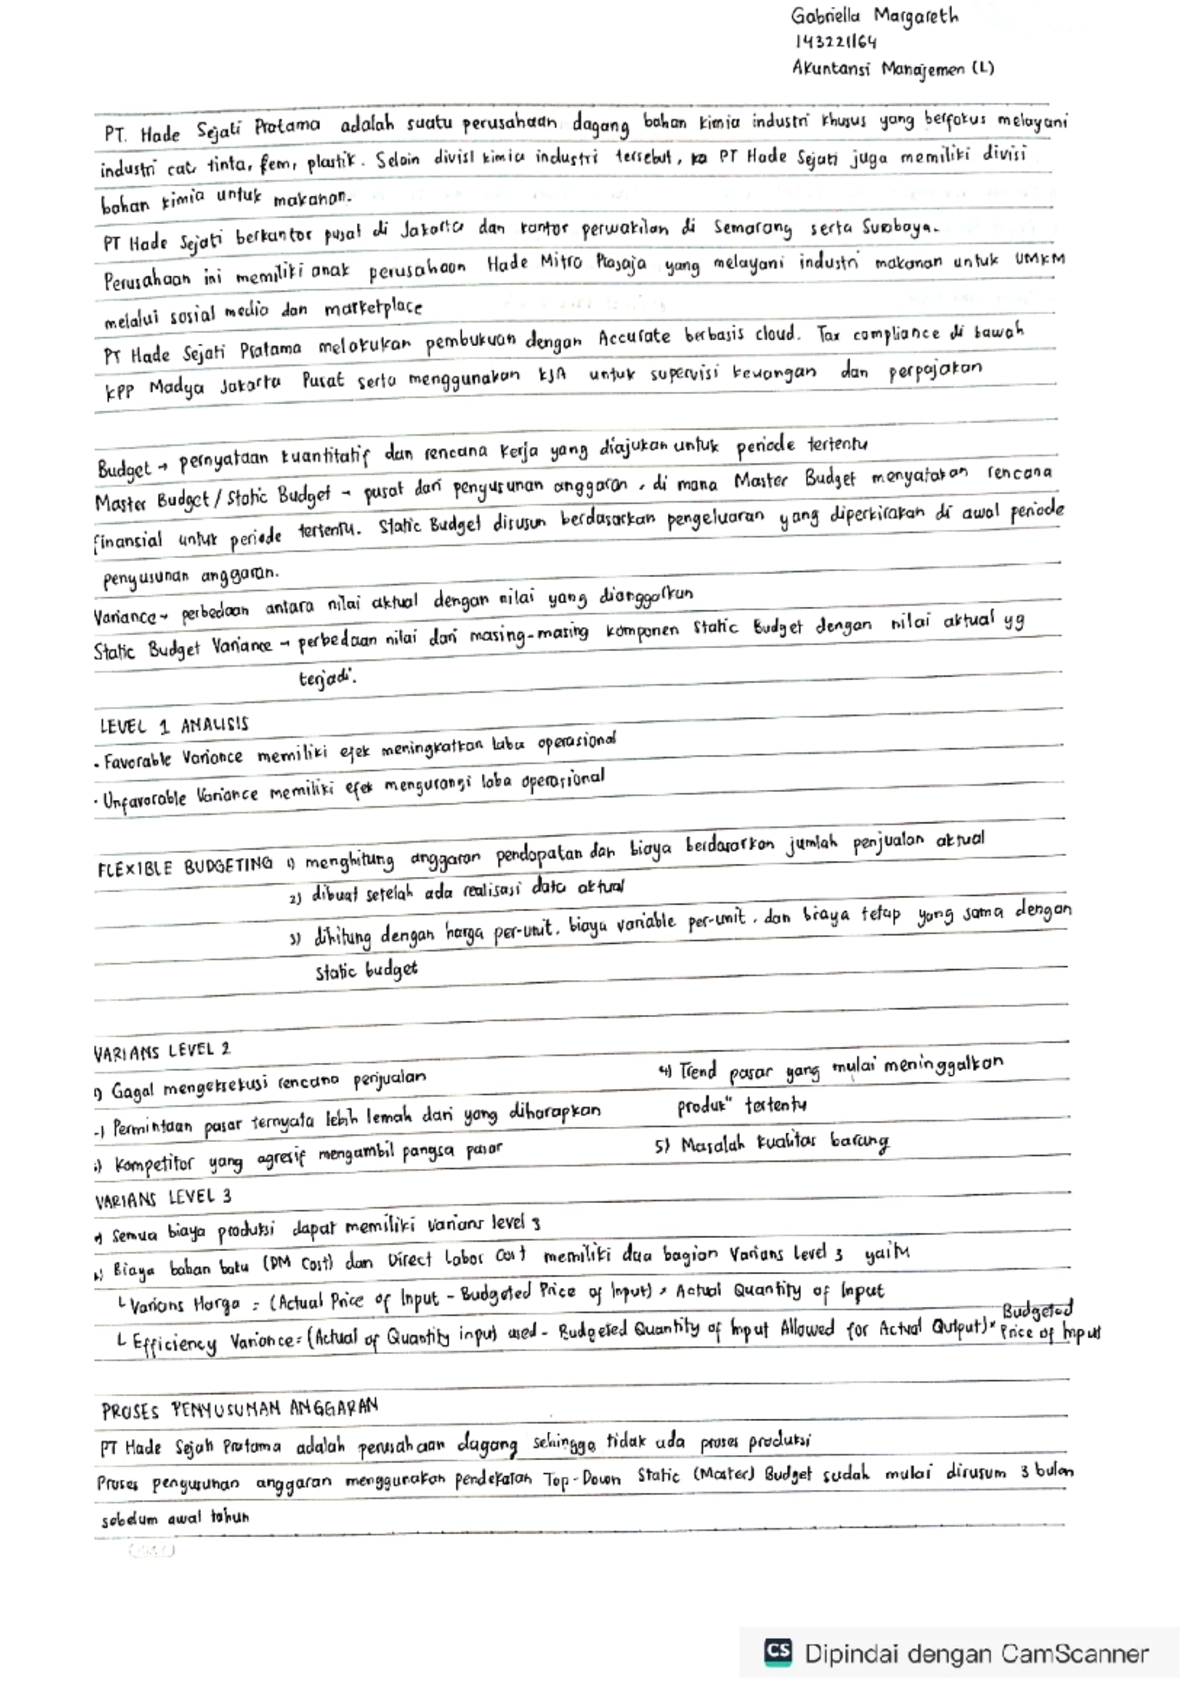 Gabriella Margareth
143221164
Akuntansi Manajemen (L)
PT. Hade Sejati Pratama adalah suatu perusahaan dagang bahan kimia industri khusus yang berfokus melayani
industri cat, tinta, lem, plastik. Selain divisi kimia industri tersebut, PT Hade Sejati juga memiliki divisi
bahan kimia untuk makanan.
PT Hade Sejati berkantor pusat di Jakarta dan kantor perwakilan di Semarang serta Surabaya.
Perusahaan ini memiliki anak perusahaan Hade Mitra Prasaja yang melayani industri makanan untuk UMKM
melalui sosial media dan marketplace
PT Hade Sejati Pratama melakukan pembukuan dengan Accurate berbasis cloud. Tax compliance di bawah
KPP Madya Jakarta Pusat serta menggunakan KJA untuk supervisi keuangan dan perpajakan
Budget → pernyataan kuantitatif dan rencana kerja yang diajukan untuk periode tertentu
Master Budget / Static Budget → pusat dari penyusunan anggaran, di mana Master Budget menyatakan rencana
finansial untuk periode tertentu. Static Budget disusun berdasarkan pengeluaran yang diperkirakan di awal periode
penyusunan anggaran.
Variance → perbedaan antara nilai aktual dengan nilai yang dianggarkan
Static Budget Variance → perbedaan nilai dari masing-masing komponen Static Budget dengan nilai aktual yg
terjadi.
LEVEL 1 ANALISIS
• Favorable Variance memiliki efek meningkatkan laba operasional
• Unfavorable Variance memiliki efek mengurangi laba operasional
FLEXIBLE BUDGETING 1) menghitung anggaran pendapatan dan biaya berdasarkan jumlah penjualan aktual
2) dibuat setelah ada realisasi data aktual
3) dihitung dengan harga per-unit, biaya variable per-unit, dan biaya tetap yang sama dengan
static budget
VARIANS LEVEL 2
1) Gagal mengeksekusi rencana penjualan
-) Permintaan pasar ternyata lebih lemah dari yang diharapkan
;) Kompetitor yang agresif mengambil pangsa pasar
4) Trend pasar yang mulai meninggalkan
produk" tertentu
5) Masalah kualitas barang
VARIANS LEVEL 3
Semua biaya produksi dapat memiliki varians level 3
Biaya bahan baku (DM Cost) dan Direct Labor Cost memiliki dua bagian Varians Level 3 yaitu
└ Varians Harga = (Actual Price of Input - Budgeted Price of Input) × Actual Quantity of Input
└ Efficiency Variance = (Actual of Quantity input used - Budgeted Quantity of Input Allowed for Actual Output) × Budgeted Price of Input
PROSES PENYUSUNAN ANGGARAN
PT Hade Sejati Pratama adalah perusahaan dagang sehingga tidak ada proses produksi
Proses penyusunan anggaran menggunakan pendekatan Top-Down Static (Master) Budget sudah mulai disusum 3 bulan
sebelum awal tahun
CS Dipindai dengan CamScanner